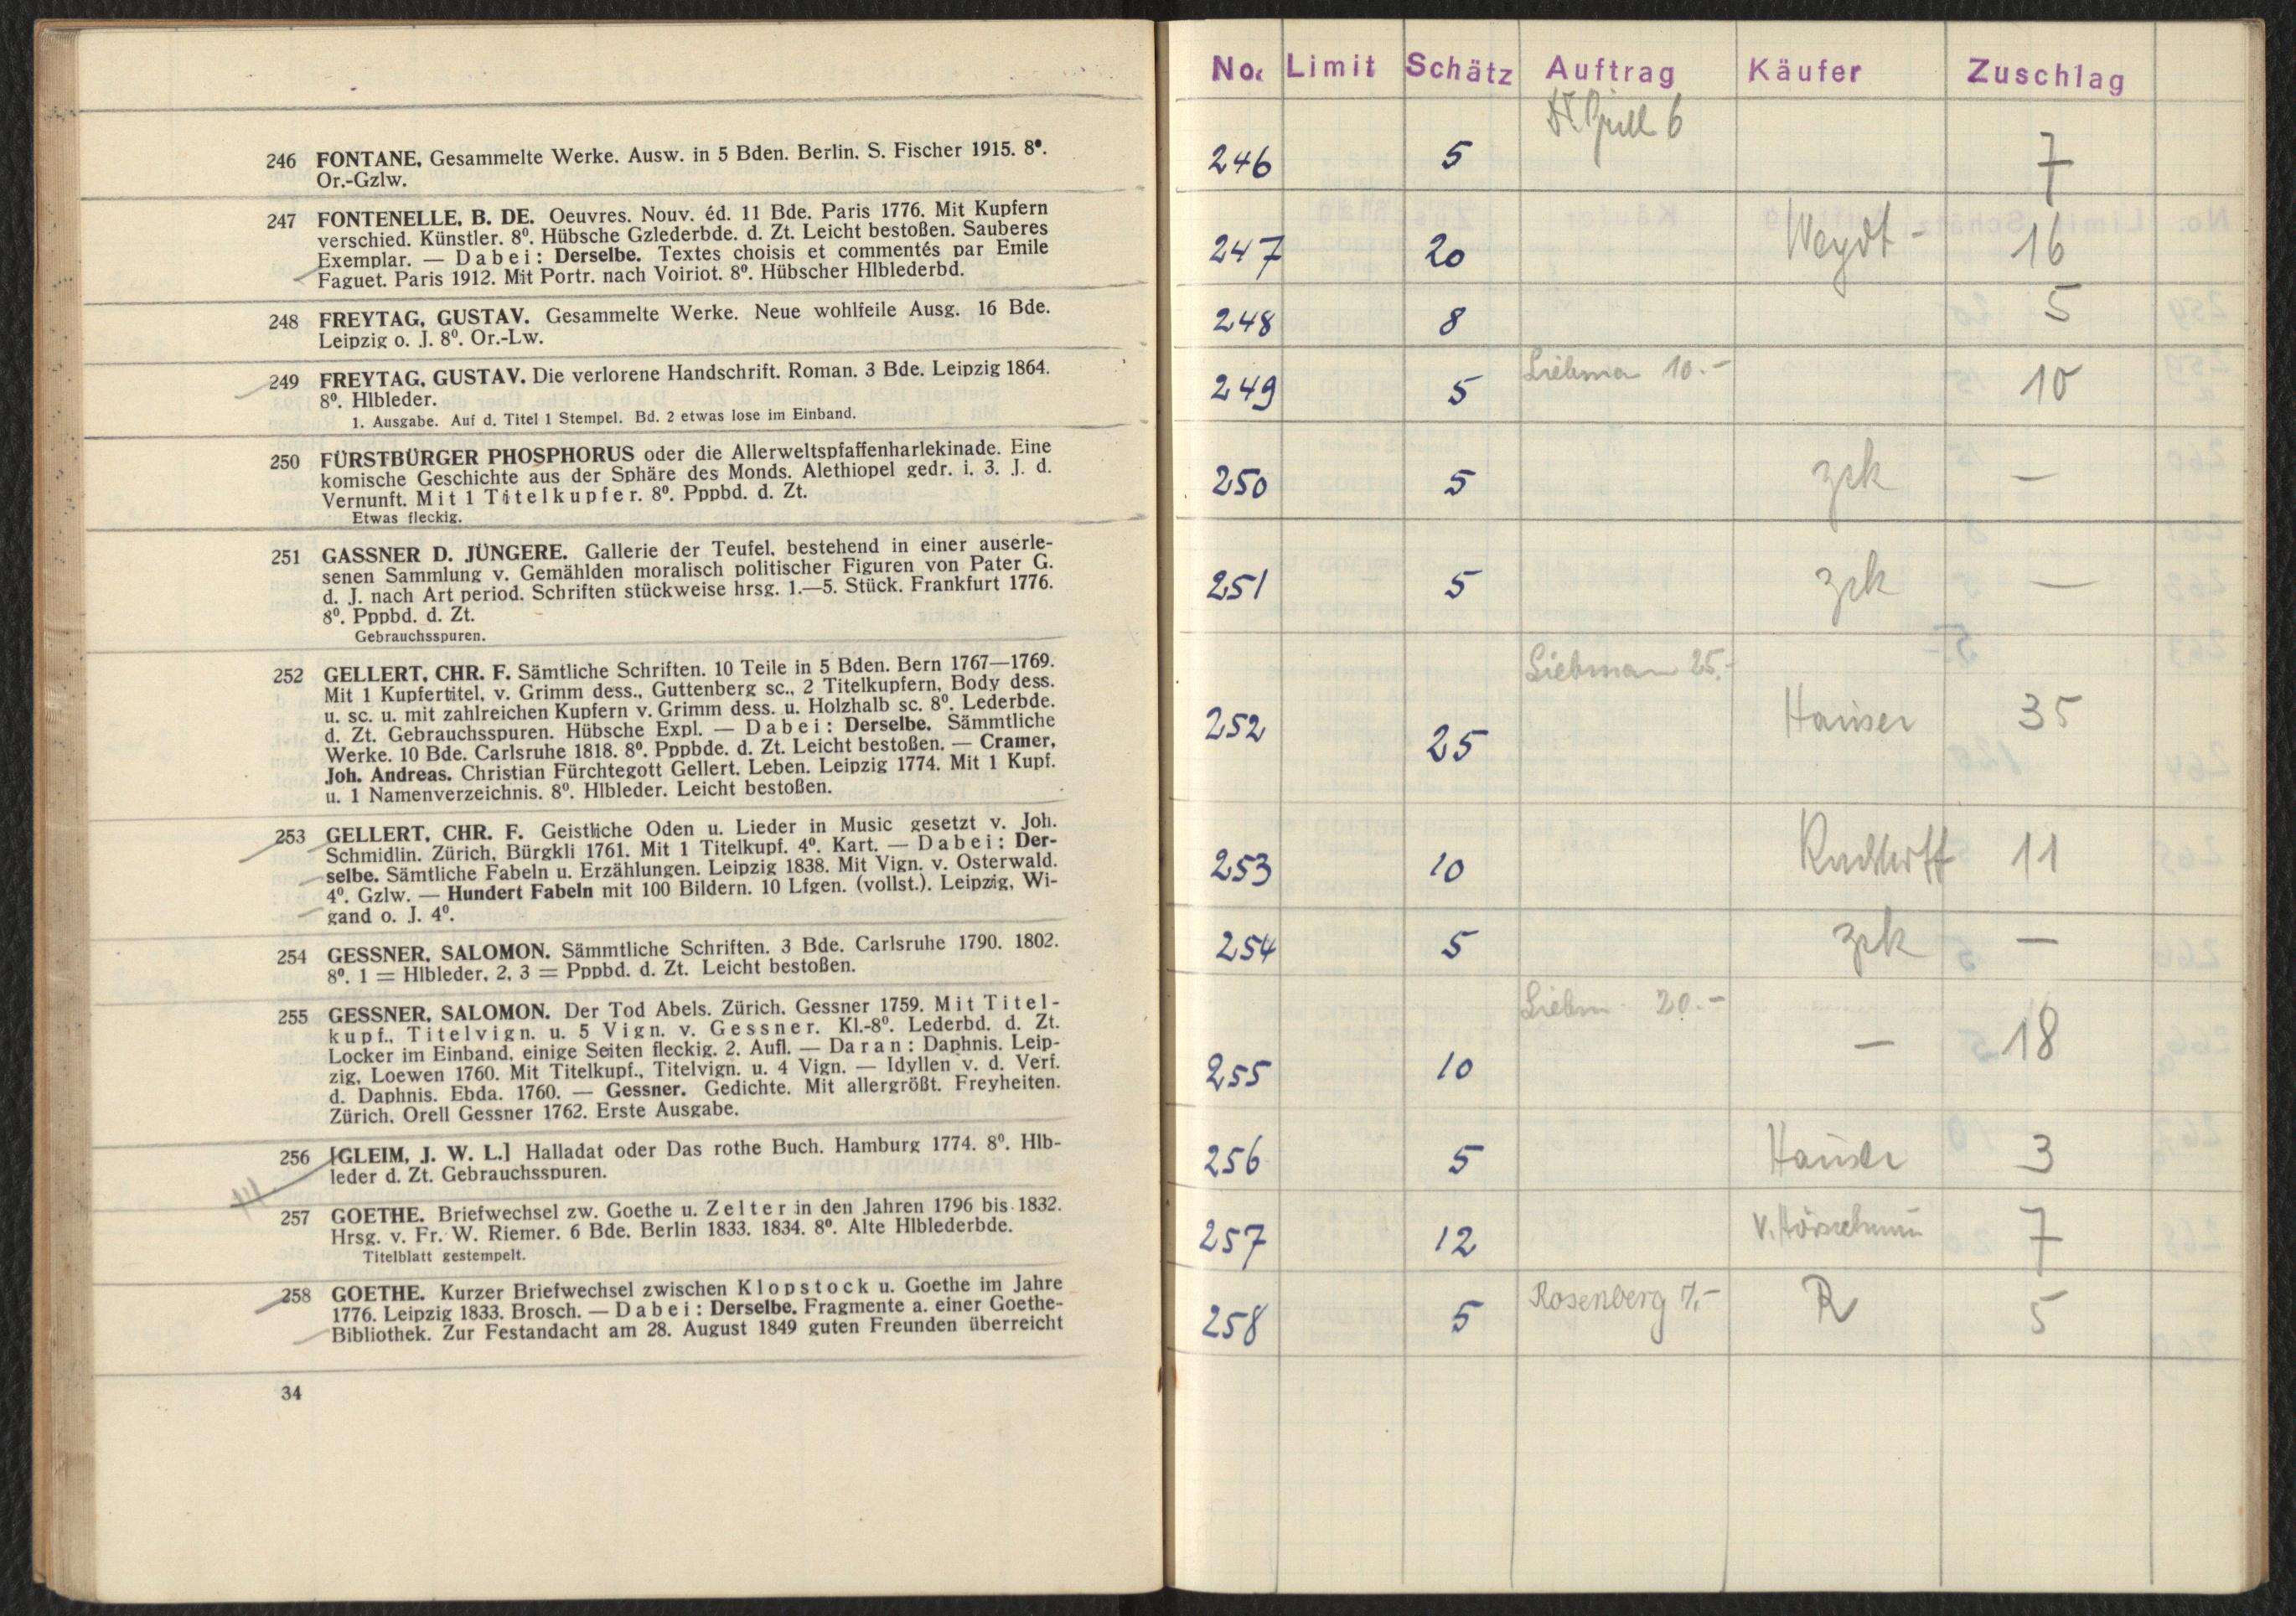 246 FONTANE, Gesammelte Werke. Ausw. in 5 Bden. Berlin, S. Fischer 1915. 8⁰.
Or.-Gzlw.
247 FONTENELLE, B. DE. Oeuvres. Nouv. éd. 11 Bde. Paris 1776. Mit Kupfern
verschied. Künstler. 8⁰. Hübsche Gzlederbde. d. Zt. Leicht bestoßen. Sauberes
Exemplar. — Dabei: Derselbe. Textes choisis et commentés par Emile
Faguet. Paris 1912. Mit Portr. nach Voiriot. 8⁰. Hübscher Hlblederbd.
248 FREYTAG, GUSTAV. Gesammelte Werke. Neue wohlfeile Ausg. 16 Bde.
Leipzig o. J. 8⁰. Or.-Lw.
249 FREYTAG, GUSTAV. Die verlorene Handschrift. Roman. 3 Bde. Leipzig 1864.
8⁰. Hlbleder.
1. Ausgabe. Auf d. Titel 1 Stempel. Bd. 2 etwas lose im Einband.
250 FÜRSTBÜRGER PHOSPHORUS oder die Allerweltspfaffenharlekinade. Eine
komische Geschichte aus der Sphäre des Monds. Alethiopel gedr. i. 3. J. d.
Vernunft. Mit 1 Titelkupfer. 8⁰. Pppbd. d. Zt.
Etwas fleckig.
251 GASSNER D. JÜNGERE. Gallerie der Teufel, bestehend in einer auserle-
senen Sammlung v. Gemählden moralisch politischer Figuren von Pater G.
d. J. nach Art period. Schriften stückweise hrsg. 1.—5. Stück. Frankfurt 1776.
8⁰. Pppbd. d. Zt.
Gebrauchsspuren.
252 GELLERT, CHR. F. Sämtliche Schriften. 10 Teile in 5 Bden. Bern 1767—1769.
Mit 1 Kupfertitel, v. Grimm dess., Guttenberg sc., 2 Titelkupfern, Body dess.
u. sc. u. mit zahlreichen Kupfern v. Grimm dess. u. Holzhalb sc. 8⁰. Lederbde.
d. Zt. Gebrauchsspuren. Hübsche Expl. — Dabei: Derselbe. Sämmtliche
Werke. 10 Bde. Carlsruhe 1818. 8⁰. Pppbde. d. Zt. Leicht bestoßen. — Cramer,
Joh. Andreas. Christian Fürchtegott Gellert. Leben. Leipzig 1774. Mit 1 Kupf.
u. 1 Namenverzeichnis. 8⁰. Hlbleder. Leicht bestoßen.
253 GELLERT, CHR. F. Geistliche Oden u. Lieder in Music gesetzt v. Joh.
Schmidlin. Zürich, Bürgkli 1761. Mit 1 Titelkupf. 4⁰. Kart. — Dabei: Der-
selbe. Sämtliche Fabeln u. Erzählungen. Leipzig 1838. Mit Vign. v. Osterwald.
4⁰. Gzlw. — Hundert Fabeln mit 100 Bildern. 10 Lfgen. (vollst.). Leipzig, Wi-
gand o. J. 4⁰.
254 GESSNER, SALOMON. Sämmtliche Schriften. 3 Bde. Carlsruhe 1790. 1802.
8⁰. 1 = Hlbleder, 2, 3 = Pppbd. d. Zt. Leicht bestoßen.
255 GESSNER, SALOMON. Der Tod Abels. Zürich, Gessner 1759. Mit Titel-
kupf., Titelvign. u. 5 Vign. v. Gessner. Kl.-8⁰. Lederbd. d. Zt.
Locker im Einband, einige Seiten fleckig. 2. Aufl. — Daran: Daphnis. Leip-
zig, Loewen 1760. Mit Titelkupf., Titelvign. u. 4 Vign. — Idyllen v. d. Verf.
d. Daphnis. Ebda. 1760. — Gessner. Gedichte. Mit allergrößt. Freyheiten.
Zürich, Orell Gessner 1762. Erste Ausgabe.
256 [GLEIM, J. W. L.] Halladat oder Das rothe Buch. Hamburg 1774. 8⁰. Hlb-
leder d. Zt. Gebrauchsspuren.
257 GOETHE. Briefwechsel zw. Goethe u. Zelter in den Jahren 1796 bis 1832.
Hrsg. v. Fr. W. Riemer. 6 Bde. Berlin 1833. 1834. 8⁰. Alte Hlblederbde.
Titelblatt gestempelt.
258 GOETHE. Kurzer Briefwechsel zwischen Klopstock u. Goethe im Jahre
1776. Leipzig 1833. Brosch. — Dabei: Derselbe. Fragmente a. einer Goethe-
Bibliothek. Zur Festandacht am 28. August 1849 guten Freunden überreicht
34
No. Limit Schätz Auftrag Käufer Zuschlag
246 5 6 7
247 20 Weydt - 16
248 8 5
249 5 Liebman 10.- 10
250 5 zrk —
251 5 zrk —
252 25 Liebman 25.- Hauser 35
253 10 11
254 5 zrk —
255 10 Liebm 20.- — 18
256 5 Hauser 3
257 12 7
258 5 Rosenberg 7.- R 5